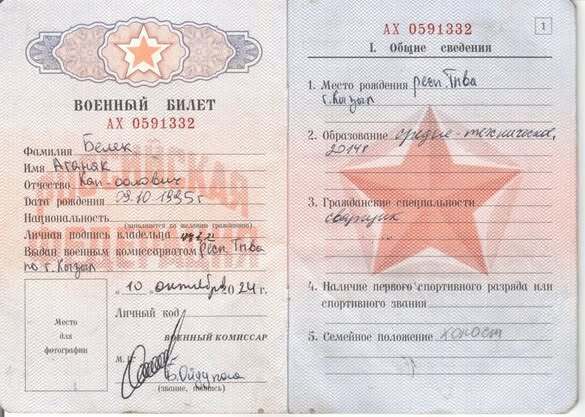 ВОЕННЫЙ БИЛЕТ
АХ 0591332
Фамилия Белек
Имя Аганак
Отчество Кан-оолович
Дата рождения 09.10 1995г
Национальность
(заполняется по желанию гражданина)
Личная подпись владельца
Выдан военным комиссариатом респ. Тыва
по г. Кызыл
"10" октября 2024 г.
Личный код
Место
для
фотографии
ВОЕННЫЙ КОМИССАР
М. П.
(звание, подпись)
АХ 0591332
1
I. Общие сведения
1. Место рождения респ. Тыва
г. Кызыл
2. Образование средне-техническое,
2014г
3. Гражданские специальности
сварщик
4. Наличие первого спортивного разряда или
спортивного звания
5. Семейное положение холост